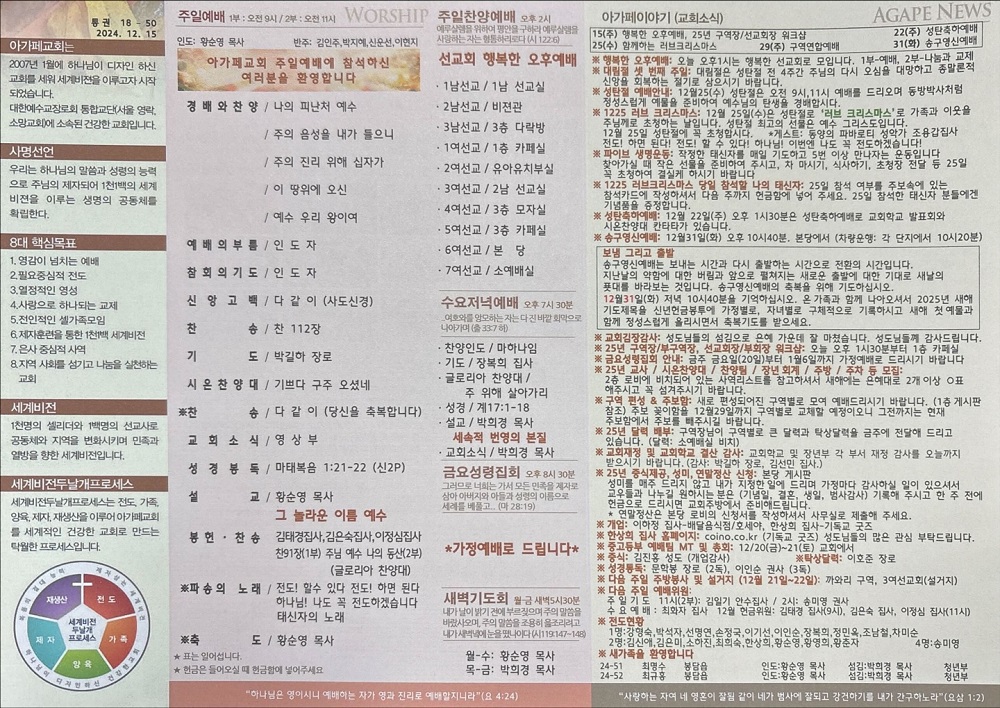 통권 18 - 50
2024. 12. 15
아가페교회는
2007년 1월에 하나님이 디자인 하신
교회를 세워 세계비전을 이루고자 시작
되었습니다.
대한예수교장로회 통합교단(서울 영락,
소망교회)에 소속된 건강한 교회입니다.
사명선언
우리는 하나님의 말씀과 성령의 능력
으로 주님의 제자되어 1천1백의 세계
비젼을 이루는 생명의 공동체를
확립한다.
8대 핵심목표
1. 영감이 넘치는 예배
2.필요중심적 전도
3.열정적인 영성
4.사랑으로 하나되는 교제
5.전인적인 셀가족모임
6.제자훈련을 통한 1천1백 세계비전
7.은사 중심적 사역
8.지역 사회를 섬기고 나눔을 실천하는
교회
세계비전
1천명의 셀리더와 1백명의 선교사로
공동체와 지역을 변화시키며 민족과
열방을 향한 세계비전입니다.
세계비전두날개프로세스
세계비전두날개프로세스는 전도, 가족,
양육, 제자, 재생산을 이루어 아가페교회
를 세계적인 건강한 교회로 만드는
탁월한 프로세스입니다.
재생산
전 도
세계비전
두날개
프로세스
제 자
가 족
양 육
주일예배 1부 : 오전 9시 / 2부 : 오전 11시 WORSHIP
인도: 황순영 목사 반주: 김인주,박지혜,신운선,이현지
아가페교회 주일예배에 참석하신
여러분을 환영합니다
경배와찬양 / 나의 피난처 예수
/ 주의 음성을 내가 들으니
/ 주의 진리 위해 십자가
/ 이 땅위에 오신
/ 예수 우리 왕이여
예배의부름 / 인 도 자
참회의기도 / 인 도 자
신 앙 고 백 / 다 같 이 (사도신경)
찬 송 / 찬 112장
기 도 / 박길하 장로
시온찬양대 / 기쁘다 구주 오셨네
※찬 송 / 다 같 이 (당신을 축복합니다)
교 회 소 식 / 영 상 부
성 경 봉 독 / 마태복음 1:21-22 (신2P)
설 교 / 황순영 목사
그 놀라운 이름 예수
봉 헌 · 찬 송 김태경집사,김은숙집사,이정심집사
찬91장(1부) 주님 예수 나의 동산(2부)
(글로리아 찬양대)
※파송의 노래 / 전도! 할수 있다 전도! 하면 된다
하나님! 나도 꼭 전도하겠습니다
태신자의 노래
※축 도 / 황순영 목사
★ 표는 일어섭니다.
★ 헌금은 들어오실 때 헌금함에 넣어주세요
"하나님은 영이시니 예배하는 자가 영과 진리로 예배할지니라"(요 4:24)
주일찬양예배 오후 2시
예루살렘을 위하여 평안을 구하라 예루살렘을
사랑하는 자는 형통하리로다 (시 122:6)
선교회 행복한 오후예배
· 1남선교 / 1남 선교실
· 2남선교 / 비젼관
· 3남선교 / 3층 다락방
· 1여선교 / 1층 카페실
· 2여선교 / 유아유치부실
· 3여선교 / 2남 선교실
· 4여선교 / 3층 모자실
· 5여선교 / 3층 카페실
· 6여선교 / 본 당
· 7여선교 / 소예배실
수요저녁예배 오후 7시 30분
.여호와를 앙모하는 자는 다 진 바깥 회막으로
나아가며 (출 33:7 하)
· 찬양인도 / 마하나임
· 기도 / 장복희 집사
· 글로리아 찬양대 /
주 위해 살아가리
· 성경 / 계17:1-18
· 설교 / 박희경 목사
세속적 번영의 본질
· 교회소식 / 박희경 목사
금요성령집회 오후 8시 30분
그러므로 너희는 가서 모든 민족을 제자로
삼아 아버지와 아들과 성령의 이름으로
세례를 베풀고... (마 28:19)
*가정예배로 드립니다*
새벽기도회 월-금 새벽5시30분
내가 날이 밝기 전에 부르짖으며 주의 말씀을
바랐사오며, 주의 말씀을 조용히 읊조리려고
내가 새벽녘에 눈을 떴나이다 (시119:147~148)
월-수: 황순영 목사
목-금: 박희경 목사
아가페이야기 (교회소식) AGAPE NEWS
15(주) 행복한 오후예배, 25년 구역장/선교회장 워크샵 22(주) 성탄축하예배
25(수) 함께하는 러브크리스마스 29(주) 구역연합예배 31(화) 송구영신예배
※ 행복한 오후예배: 오늘 오후 1시는 행복한 오후예배로 모입니다. 1부-예배, 2부-나눔과 교제
※ 대림절 셋 번째 주일: 대림절은 성탄절 전 4주간 주님의 다시 오심을 대망하고 종말론적
신앙을 회복하는 절기로 삼으시기 바랍니다.
※ 성탄절 예배안내: 12월25(수) 성탄절은 오전 9시,11시 예배를 드리오며 동방박사처럼
정성스럽게 예물을 준비하여 예수님의 탄생을 경배합시다.
※ 1225 러브 크리스마스: 12월 25일(수)은 성탄절로 '러브 크리스마스'로 가족과 이웃을
주님께로 초청하는 날입니다. 성탄절 최고의 선물은 예수 그리스도입니다.
12월 25일 성탄절에 꼭 초청합시다. *게스트: 동양의 파바로티 성악가 조용갑집사
전도! 하면 된다! 전도! 할 수 있다! 하나님! 이번엔 나도 꼭 전도하겠습니다!
※ 파이브 생명운동: 작정한 태신자를 매일 기도하고 5번 이상 만나자는 운동입니다
찾아가실 때 작은 선물을 준비하여 주시고, 차 마시기, 식사하기, 초청장 전달 등 25일
꼭 초청하여 결실케 하시기 바랍니다
※ 1225 러브크리스마스 당일 참석할 나의 태신자: 25일 참석 여부를 주보속에 있는
참석카드에 작성하셔서 다음 주까지 헌금함에 넣어 주세요. 25일 참석한 태신자 분들에겐
기념품을 증정합니다.
※ 성탄축하예배: 12월 22일(주) 오후 1시30분은 성탄축하예배로 교회학교 발표회와
시온찬양대 칸타타가 있습니다.
※ 송구영신예배: 12월31일(화) 오후 10시40분. 본당에서 (차량운행: 각 단지에서 10시20분)
보냄 그리고 출발
송구영신예배는 보내는 시간과 다시 출발하는 시간으로 전환의 시간입니다.
지난날의 악함에 대한 버림과 앞으로 펼쳐지는 새로운 출발에 대한 기대로 새날의
푯대를 바라보는 것입니다. 송구영신예배의 축복을 위해 기도하십시오.
12월31일(화) 저녁 10시40분을 기억하십시오. 온 가족과 함께 나아오셔서 2025년 새해
기도제목을 신년헌금봉투에 가정별로, 자녀별로 구체적으로 기록하시고 새해 첫 예물과
함께 정성스럽게 올리시면서 축복기도를 받으세요.
※ 교회김장감사: 성도님들의 섬김으로 은혜 가운데 잘 마쳤습니다. 성도님들께 감사드립니다.
※ 25년 구역장/부구역장, 선교회장/부회장 워크샵: 오늘 오후 1시30분부터 1층 카페실
※ 금요성령집회 안내: 금주 금요일(20일)부터 1월6일까지 가정예배로 드리시기 바랍니다
※ 25년 교사 / 시온찬양대 / 찬양팀 / 장년 회계 / 주방 / 주차 등 모집:
2층 로비에 비치되어 있는 사역리스트를 참고하셔서 새해에는 은혜대로 2개 이상 O표
해주시고 꼭 섬겨주시기 바랍니다.
※ 구역 편성 & 주보함: 새로 편성되어진 구역별로 모여 예배드리시기 바랍니다. (1층 게시판
참조) 주보 꽂이함을 12월29일까지 구역별로 교체할 예정이오니 그전까지는 현재
주보함에서 주보를 빼주시길 바랍니다.
※ 25년 달력 배부: 구역장님이 구역별로 큰 달력과 탁상달력을 금주에 전달해 드리고
있습니다. (달력: 소예배실 비치)
※ 교회재정 및 교회학교 결산 감사: 교회학교 및 장년부 각 부서 재정 감사를 오늘까지
받으시기 바랍니다. (감사: 박길하 장로, 김선민 집사.)
※ 25년 중식제공, 성미, 연말정산 신청: 본당 게시판
성미를 매주 드리지 않고 내가 지정한 일에 드리며 가정마다 감사하실 일이 있으셔서
교우들과 나누길 원하시는 분은 (기념일, 결혼, 생일, 범사감사) 기록해 주시고 한 주 전에
헌금으로 드리시면 교회주방에서 준비해드립니다.
* 연말정산은 본당 로비의 신청서를 작성하셔서 사무실로 제출해 주세요.
※ 개업: 이하정 집사-배달음식점/호세야, 한상희 집사-기독교 굿즈
※ 한상희 집사 홈페이지: coino.co.kr (기독교 굿즈) 성도님들의 많은 관심 부탁드립니다.
※ 중고등부 예배팀 MT 및 총회: 12/20(금)~21(토) 교회에서
※ 중식: 김진홍 성도 (개업감사) ※탁상달력: 이호준 장로
※ 성경통독: 문학봉 장로 (2독), 이인순 권사 (3독)
※ 다음 주일 주방봉사 및 설거지 (12월 21일~22일): 까와리 구역, 3여선교회(설거지)
※ 다음 주일 예배위원:
주 일 기 도 : 11시(2부): 김일기 안수집사 / 2시: 송미영 권사
수 요 예 배 : 최화자 집사 12월 헌금위원: 김태경 집사(9시), 김은숙 집사, 이정심 집사(11시)
※ 전도현황
1명:강영숙,박석자,선명연,손정국,이기선,이인순,장복희,정민옥,조남철,차미순
2명:김신애,김은미,소하진,최희숙,한상희,황순영,황영희,황춘자 4명:송미영
※ 새가족을 환영합니다
24-51 최명수 봉담읍 인도:황순영 목사 섬김:박희경 목사 청년부
24-52 최규홍 봉담읍 인도:황순영 목사 섬김:박희경 목사 청년부
"사랑하는 자여 네 영혼이 잘됨 같이 네가 범사에 잘되고 강건하기를 내가 간구하노라"(요삼 1:2)